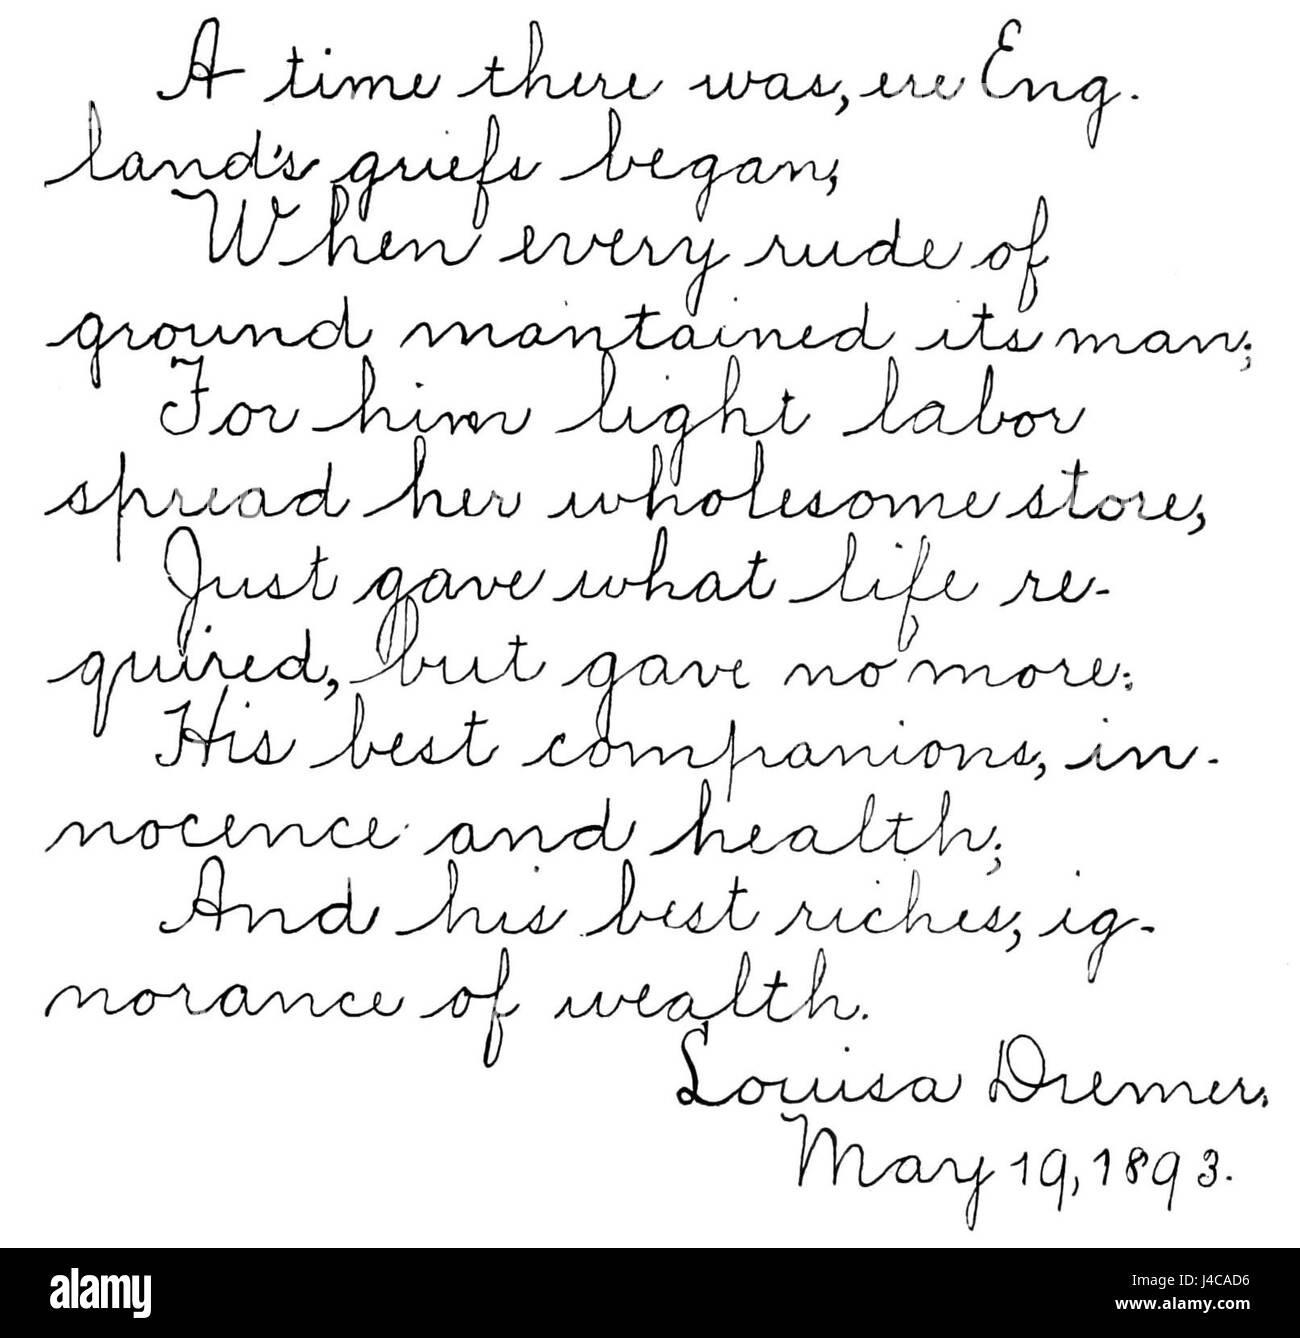 A time there was, ere Eng-
land's griefs began,
When every rude of
ground mantained its man;
For him light labor
spread her wholesome store,
Just gave what life re-
quired, but gave no more:
His best companions, in-
nocence and health;
And his best riches, ig-
norance of wealth.
Louisa Dremer.
May 19, 1893.
alamy stock photo
J4CAD6
www.alamy.com